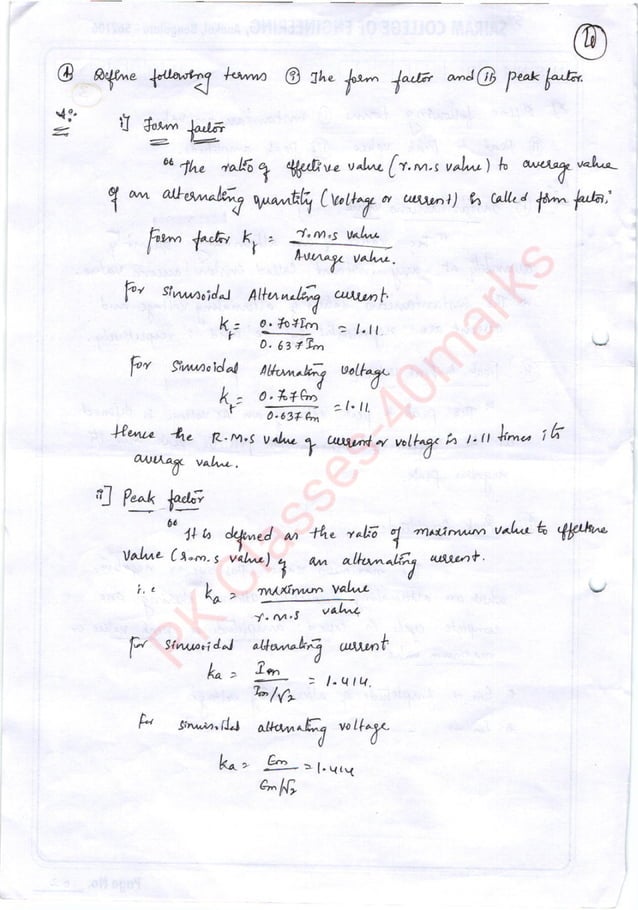 20
④ Define following terms ① The form factor and ⓘⓘ peak factor.
A:
i] Form factor
"The ratio of effective value (r.m.s value) to average value
of an alternating quantity (voltage or current) is called form factor."
Form factor Kf = r.m.s value / Average value.
For sinusoidal Alternating current.
Kf = 0.707Im / 0.637Im = 1.11
For sinusoidal Alternating voltage
Kf = 0.707Em / 0.637Em = 1.11.
Hence the R.M.S value of current or voltage is 1.11 times its
average value.
ii] Peak factor
"It is defined as the ratio of maximum value to effective
value (r.m.s value) of an alternating current.
i.e Ka = maximum value / r.m.s value
For sinusoidal alternating current
Ka = Im / Im/√2 = 1.414.
For sinusoidal alternating voltage
Ka = Em / Em/√2 = 1.414
PK Classes-40marks
SAIRAM COLLEGE OF ENGINEERING, Anekal, Bengaluru - 562106
Page No.